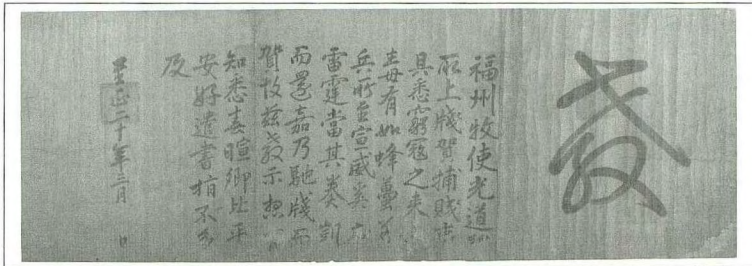 教
福州牧使光道
所上牋賀捕賊事
具悉窮寇之來
毒有如蜂蠆
兵所至宣威奚
雷霆當其奏凱
而還嘉乃馳牋而
賀故玆教示想
知悉春暄卿比平
安好遣書指不多
及
至正二十年三月 日